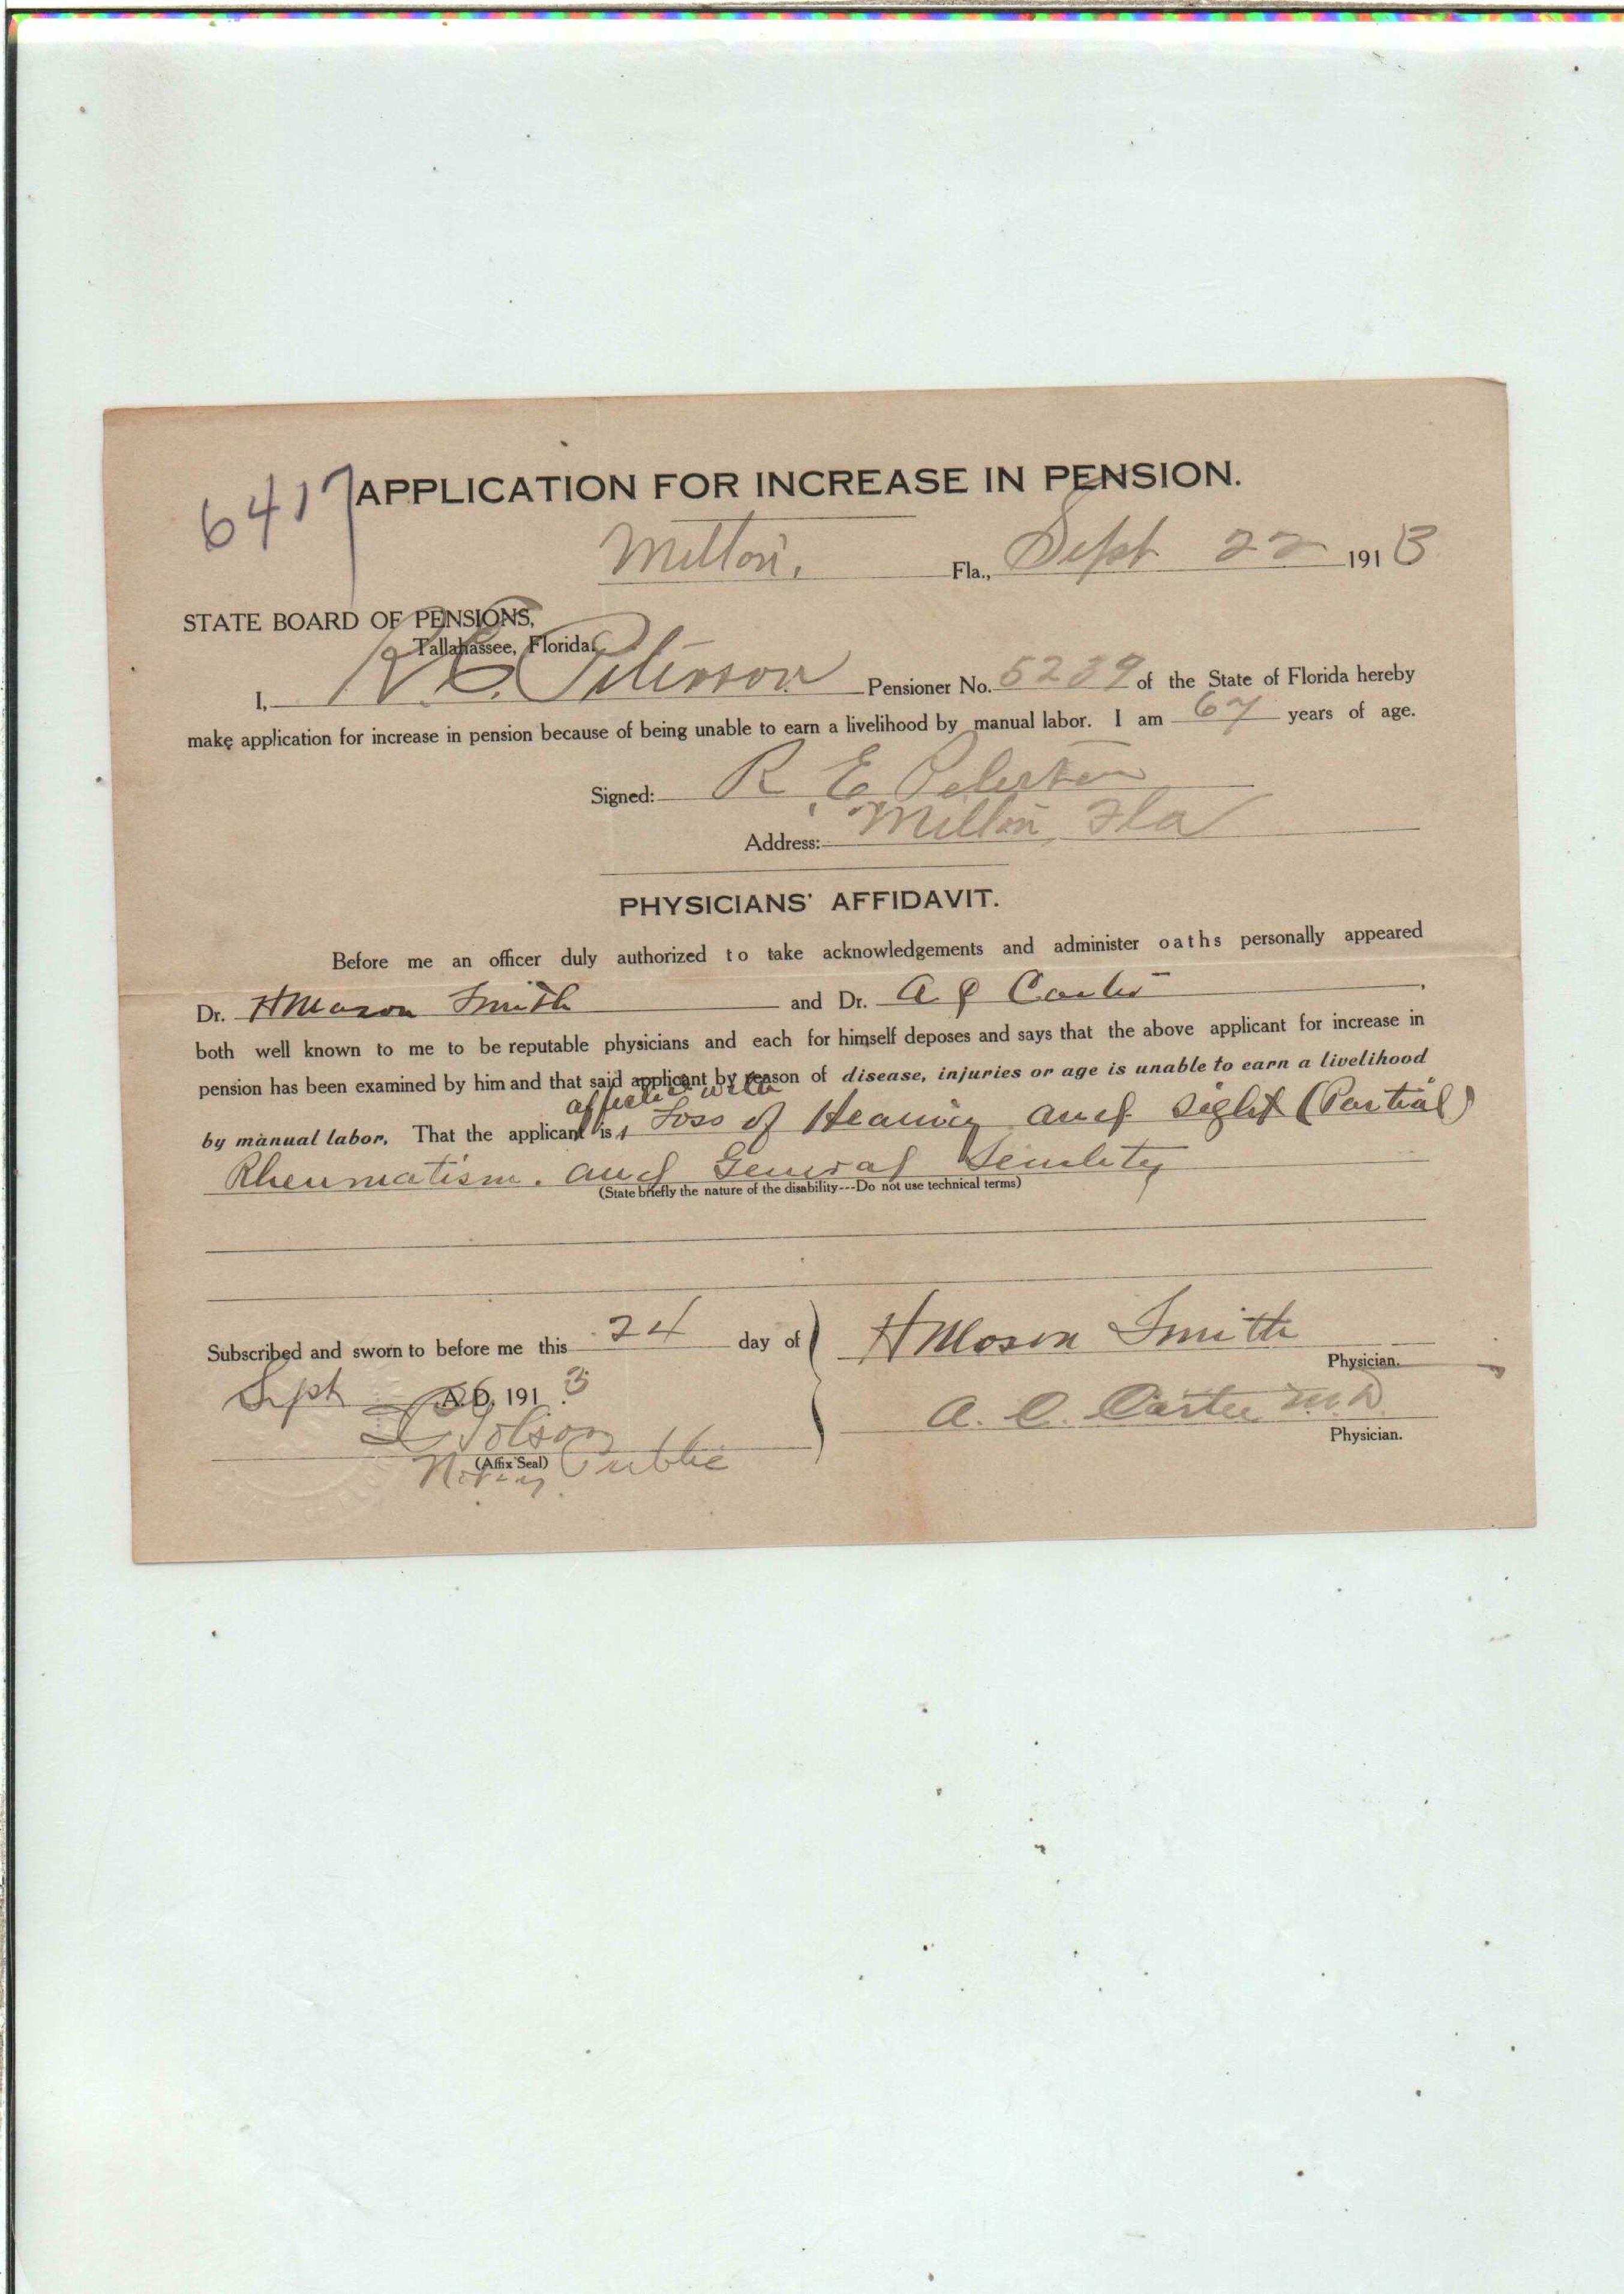 6417
APPLICATION FOR INCREASE IN PENSION.
Milton, Fla., Sept 22 1913
STATE BOARD OF PENSIONS,
Tallahassee, Florida.
I, R. E. Peterson Pensioner No. 5239 of the State of Florida hereby
make application for increase in pension because of being unable to earn a livelihood by manual labor. I am 67 years of age.
Signed: R. E Peterson
Address: Milton, Fla
PHYSICIANS' AFFIDAVIT.
Before me an officer duly authorized to take acknowledgements and administer oaths personally appeared
Dr. H Mason Smith and Dr. A C Carter,
both well known to me to be reputable physicians and each for himself deposes and says that the above applicant for increase in
pension has been examined by him and that said applicant by reason of disease, injuries or age is unable to earn a livelihood
afflicted with
by manual labor. That the applicant is Loss of Hearing and sight (Partial)
Rheumatism. and General Senility
(State briefly the nature of the disability---Do not use technical terms)
Subscribed and sworn to before me this 24 day of
H Mason Smith
Physician.
Sept A. D. 1913
A. C. Carter M.D.
Physician.
Tolson
(Affix Seal)
Notary Public